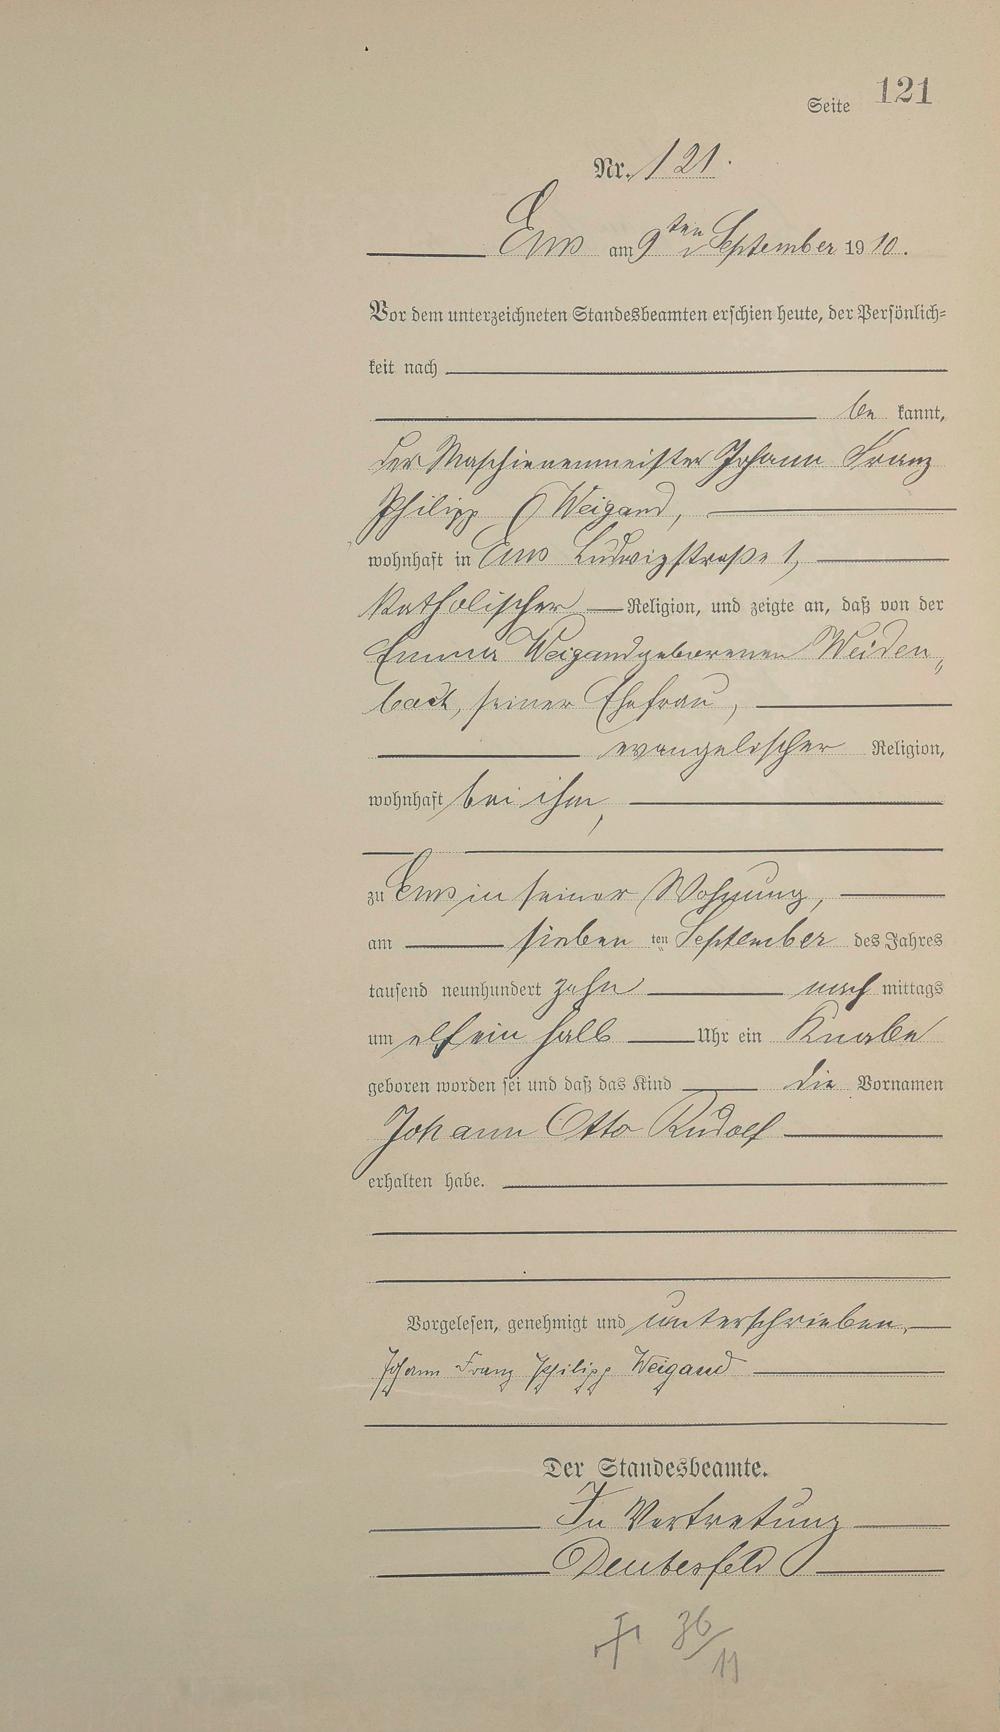 Seite 121
Nr. 121.
Ems am 9ten September 1910.
Vor dem unterzeichneten Standesbeamten erschien heute, der Persönlich-
keit nach
be kannt,
der Maschienenmeister Johann Franz
Philipp Weigand,
wohnhaft in Ems Ludwigstraße 1,
katholischer Religion, und zeigte an, daß von der
Emma Weigand geborenen Weiden„
bach, seiner Ehefrau,
evangelischer Religion,
wohnhaft bei ihm,
zu Ems in seiner Wohnung,
am sieben ten September des Jahres
tausend neunhundert zehn nach mittags
um elf ein halb Uhr ein Knabe
geboren worden sei und daß das Kind die Vornamen
Johann Otto Rudolf
erhalten habe.
Vorgelesen, genehmigt und unterschrieben.
Johann Franz Philipp Weigand
Der Standesbeamte.
In Vertretung
Deubesfeld
36/11